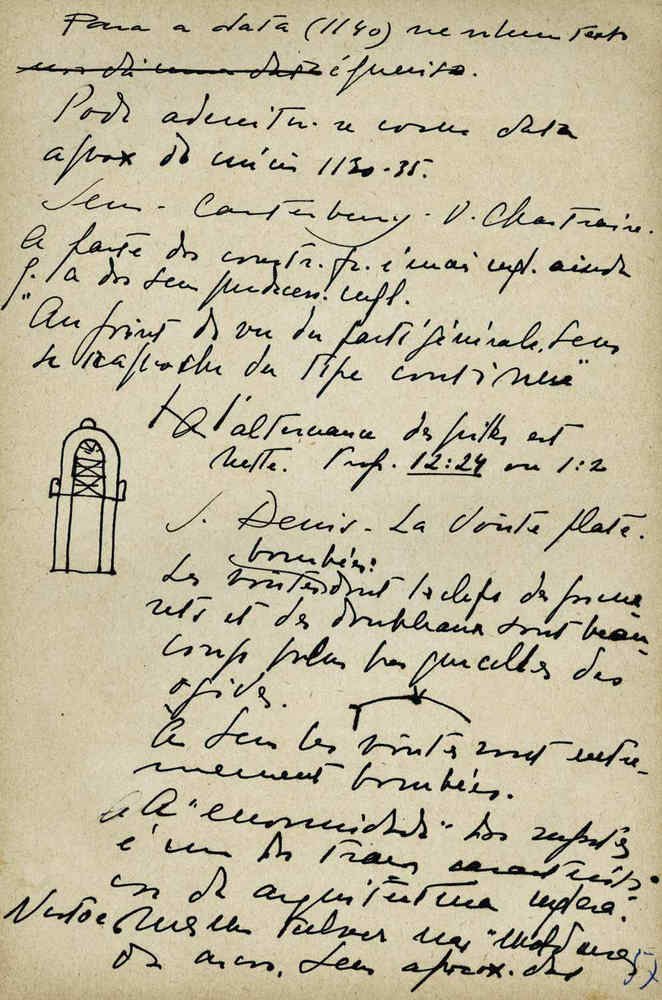 Para a data (1140) nenhum texto
é preciso.
Pode admitir-se como data
aprox de início 1130-35.
Sens - Canterbury - V. Chartraire.
A parte dos constr. fr. é mais ingl. ainda
q. a dos seus ingl.
"Au point de vue du parti générale, Sens
se rapproche du type continu"
A l'alternance des piles est
nette. Prof. 12:24 ou 1:2
S. Denis - La voûte plate.
bombées:
Les voûtes dont les clefs des forme-
rets et des doubleaux sont beau-
coup plus bas que celles des
ogives.
A Sens les voûtes sont extre-
mement bombées.
A "enormidade" dos suportes
é um dos traços
cos da arquitetura inglesa.
mesmo talvez nas "molduras
de arcos. Sens aprox. das
57